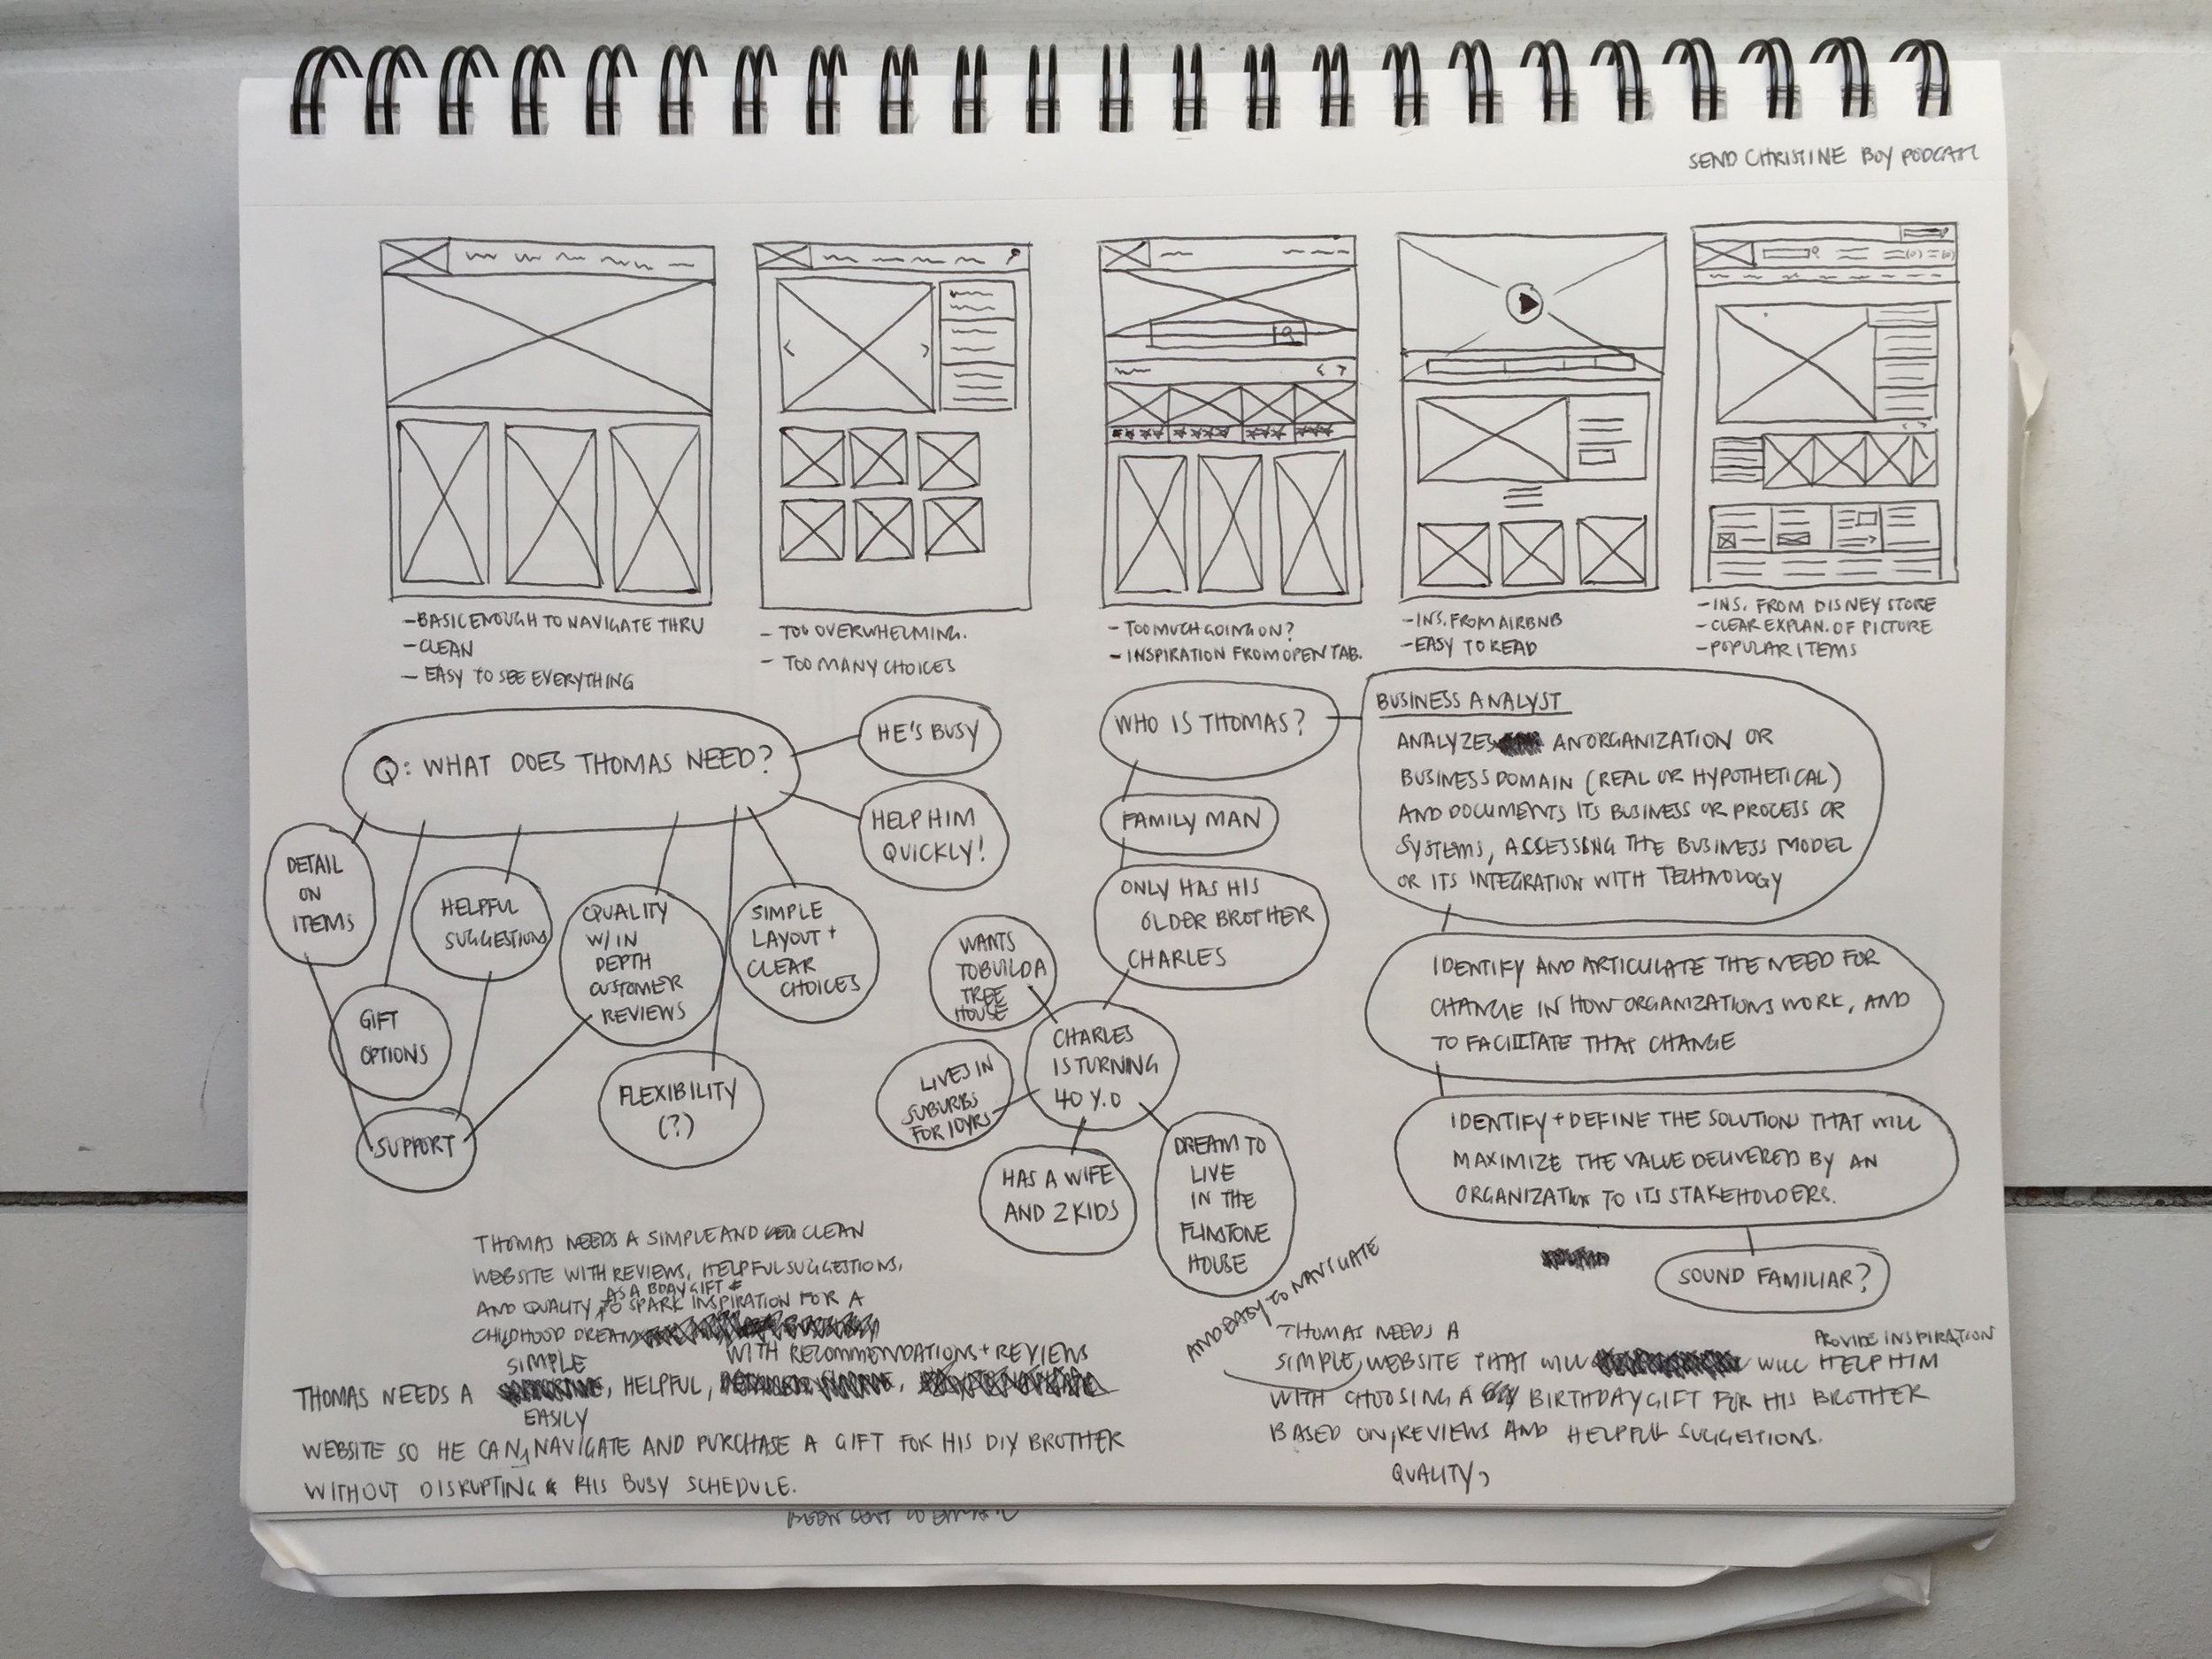 SEND CHRISTINE BOY PODCAST
-BASIC ENOUGH TO NAVIGATE THRU
-CLEAN
- EASY TO SEE EVERYTHING
- TOO OVERWHELMING.
- TOO MANY CHOICES
- TOO MUCH GOING ON?
- INSPIRATION FROM OPEN TAB.
-INS. FROM AIRBNB
-EASY TO READ
-INS. FROM DISNEY STORE
-CLEAR EXPLAN. OF PICTURE
-POPULAR ITEMS
Q: WHAT DOES THOMAS NEED?
HE'S BUSY
HELP HIM
QUICKLY!
DETAIL
ON
ITEMS
GIFT
OPTIONS
HELPFUL
SUGGESTIONS
QUALITY
W/IN
DEPTH
CUSTOMER
REVIEWS
SIMPLE
LAYOUT +
CLEAR
CHOICES
FLEXIBILITY
(?)
SUPPORT
WHO IS THOMAS?
FAMILY MAN
ONLY HAS HIS
OLDER BROTHER
CHARLES
WANTS
TO BUILD A
TREE
HOUSE
CHARLES
IS TURNING
40 Y.O
LIVES IN
SUBURBS
FOR 10YRS
HAS A WIFE
AND 2 KIDS
DREAM TO
LIVE
IN THE
FLINSTONE
HOUSE
BUSINESS ANALYST
ANALYZES AN ORGANIZATION OR
BUSINESS DOMAIN (REAL OR HYPOTHETICAL)
AND DOCUMENTS ITS BUSINESS OR PROCESS OR
SYSTEMS, ASSESSING THE BUSINESS MODEL
OR ITS INTEGRATION WITH TECHNOLOGY
IDENTIFY AND ARTICULATE THE NEED FOR
CHANGE IN HOW ORGANIZATIONS WORK, AND
TO FACILITATE THAT CHANGE
IDENTIFY + DEFINE THE SOLUTIONS THAT WILL
MAXIMIZE THE VALUE DELIVERED BY AN
ORGANIZATION TO ITS STAKEHOLDERS.
SOUND FAMILIAR?
THOMAS NEEDS A SIMPLE AND CLEAN
WEBSITE WITH REVIEWS, HELPFUL SUGGESTIONS,
AS A BDAY GIFT
AND QUALITY, TO SPARK INSPIRATION FOR A
CHILDHOOD DREAM
SIMPLE
WITH RECOMMENDATIONS + REVIEWS
THOMAS NEEDS A , HELPFUL,
EASILY
WEBSITE SO HE CAN NAVIGATE AND PURCHASE A GIFT FOR HIS DIY BROTHER
WITHOUT DISRUPTING HIS BUSY SCHEDULE.
AND EASY TO NAVIGATE
THOMAS NEEDS A
PROVIDE INSPIRATION
SIMPLE, WEBSITE THAT WILL WILL HELP HIM
WITH CHOOSING A BIRTHDAY GIFT FOR HIS BROTHER
BASED ON REVIEWS AND HELPFUL SUGGESTIONS.
QUALITY,